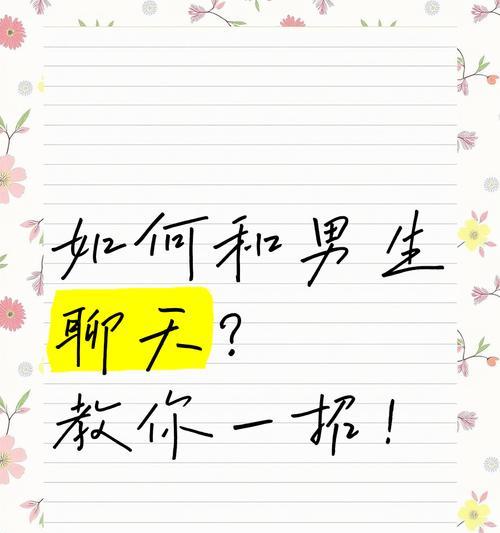 如何和男生
聊天？
教你一招！